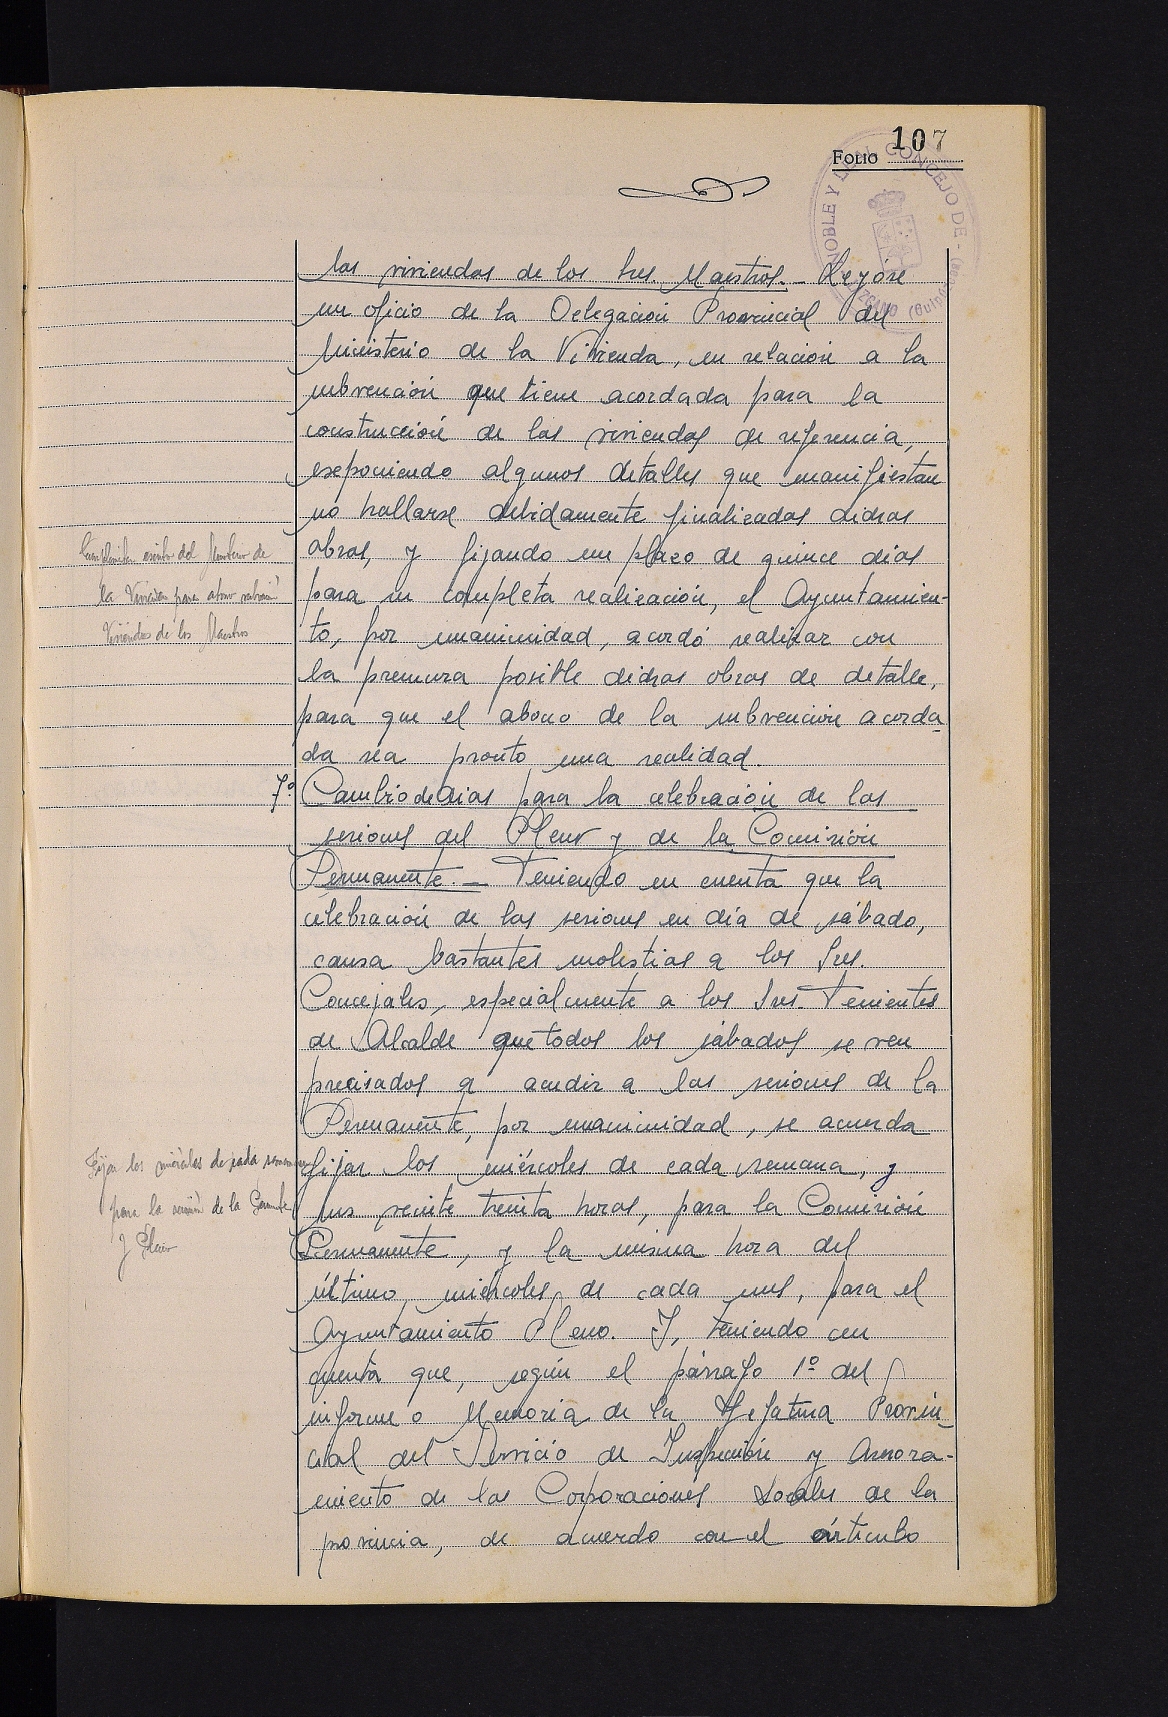 FOLIO 107
NOBLE Y LEAL CONCEJO DE
las viviendas de los Sres. Maestros.- Leyóse
un oficio de la Delegación Provincial del
Ministerio de la Vivienda, en relación a la
subvención que tiene acordada para la
construcción de las viviendas de referencia,
exponiendo algunos detalles que manifiestan
no hallarse debidamente finalizadas dichas
obras, y fijando un plazo de quince días
para su completa realización, el Ayuntamien-
to, por unanimidad, acordó realizar con
la premura posible dichas obras de detalle,
para que el abono de la subvención acorda-
da sea pronto una realidad.
7º Cambio de días para la celebración de las
sesiones del Pleno y de la Comisión
Permanente.- Teniendo en cuenta que la
celebración de las sesiones en día de sábado,
causa bastantes molestias a los Sres.
Concejales, especialmente a los Sres. Tenientes
de Alcalde que todos los sábados se ven
precisados a acudir a las sesiones de la
Permanente, por unanimidad, se acuerda
fijar los miércoles de cada semana, y
sus veinte treinta horas, para la Comisión
Permanente, y la misma hora del
último miércoles de cada mes, para el
Ayuntamiento Pleno. Y, teniendo en
cuenta que, según el párrafo 1º del
informe o Memoria de la Jefatura Provin-
cial del Servicio de Inspección y Asesora-
miento de las Corporaciones Locales de la
provincia, de acuerdo con el artículo
escrito del
la Vivienda para abono
Viviendas de los Maestros
Fijar los miércoles de cada semana
para la sesión de la
y Pleno